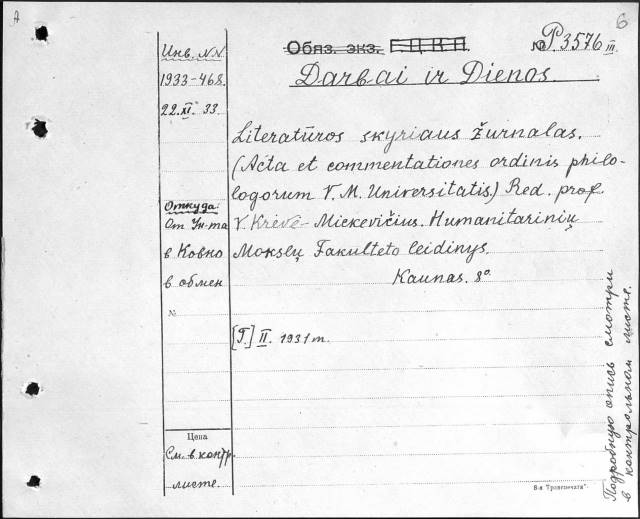 А
6
Обяз. экз. Г.Ц.К.П.
№ P.3576 III.
Darbai ir Dienos.
Инв. NN.
1933-468.
22.XI. 33.
Literatūros skyriaus žurnalas.
(Acta et commentationes ordinis philo-
logorum V. M. Universitatis) Red. prof
V. Krėvė-Mickevičius. Humanitarinių
Mokslų Fakulteto leidinys.
Kaunas. 8°.
Откуда:
От Ун-та
в Ковно
в обмен
№
[T.] II. 1931 m.
Цена
См. в контр.
листе.
Подробную опись смотри
в контрольном листе.
8-я Транспечати".